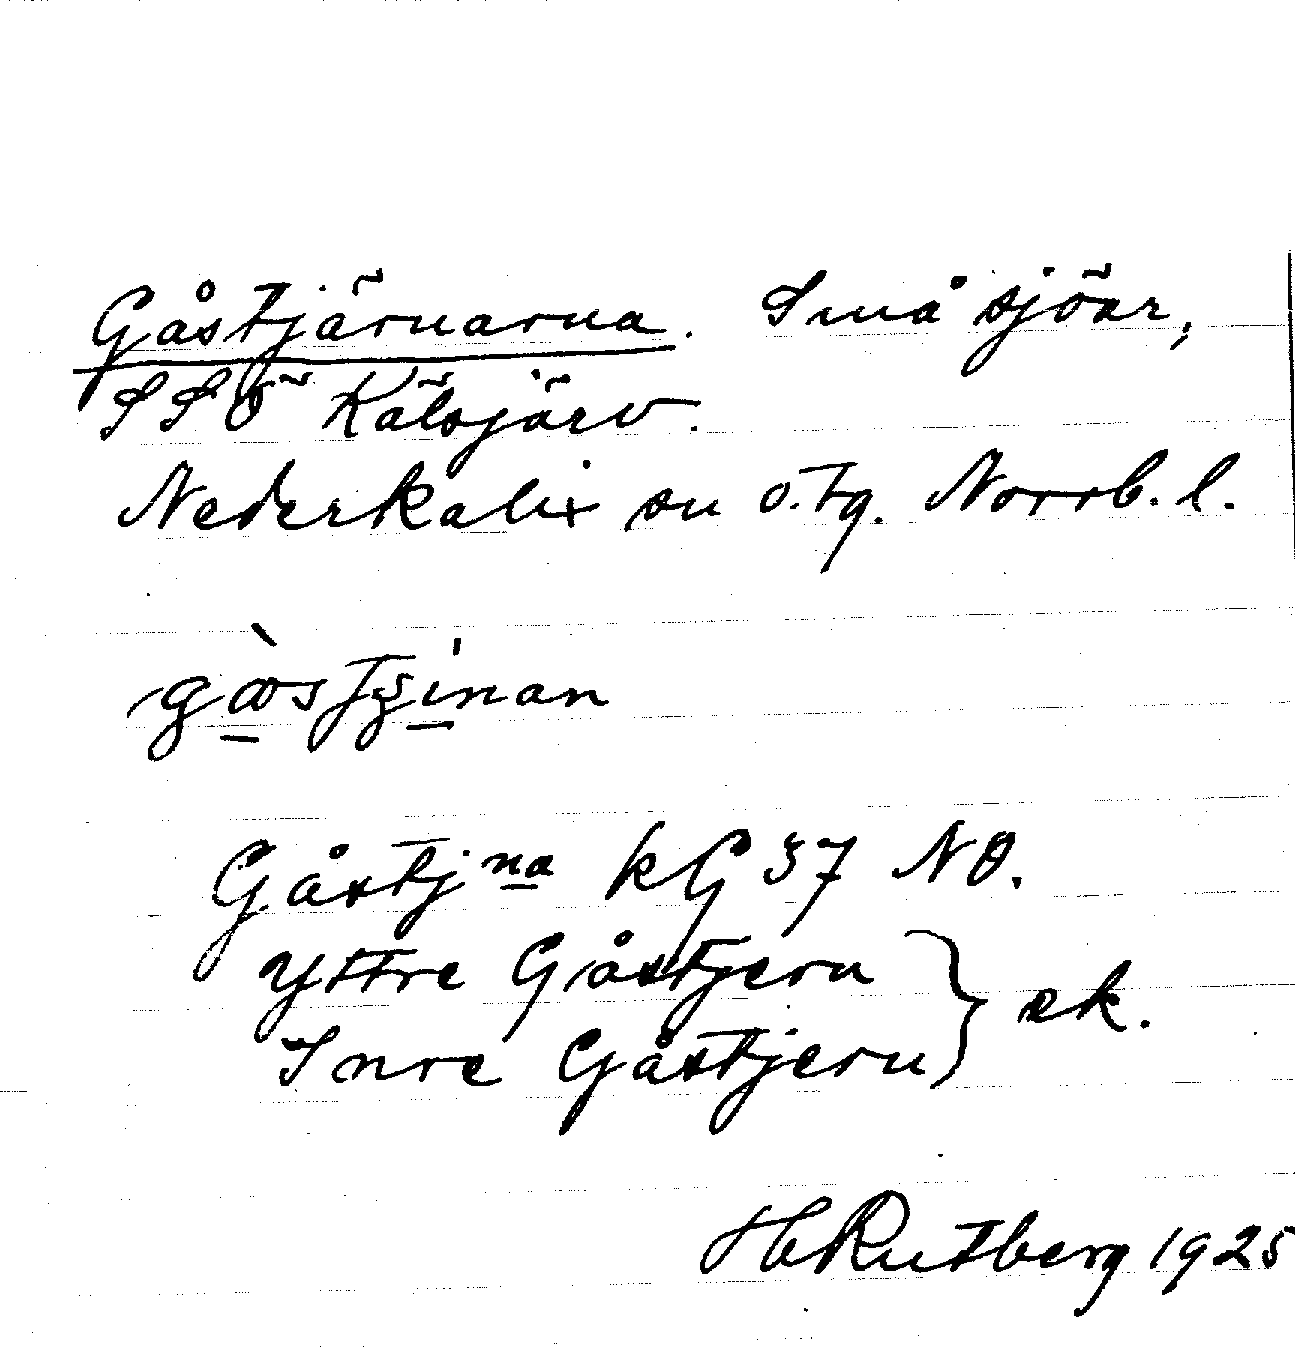 Gåstjärnarna. Små sjöar,
SSÖ Kälsjärv.
Nederkalix sn ö. tg. Norrb. l.
Gåstjna kG 37 NO.
Yttre Gåstjern
Inre Gåstjern } ek.
H Rutberg 1925